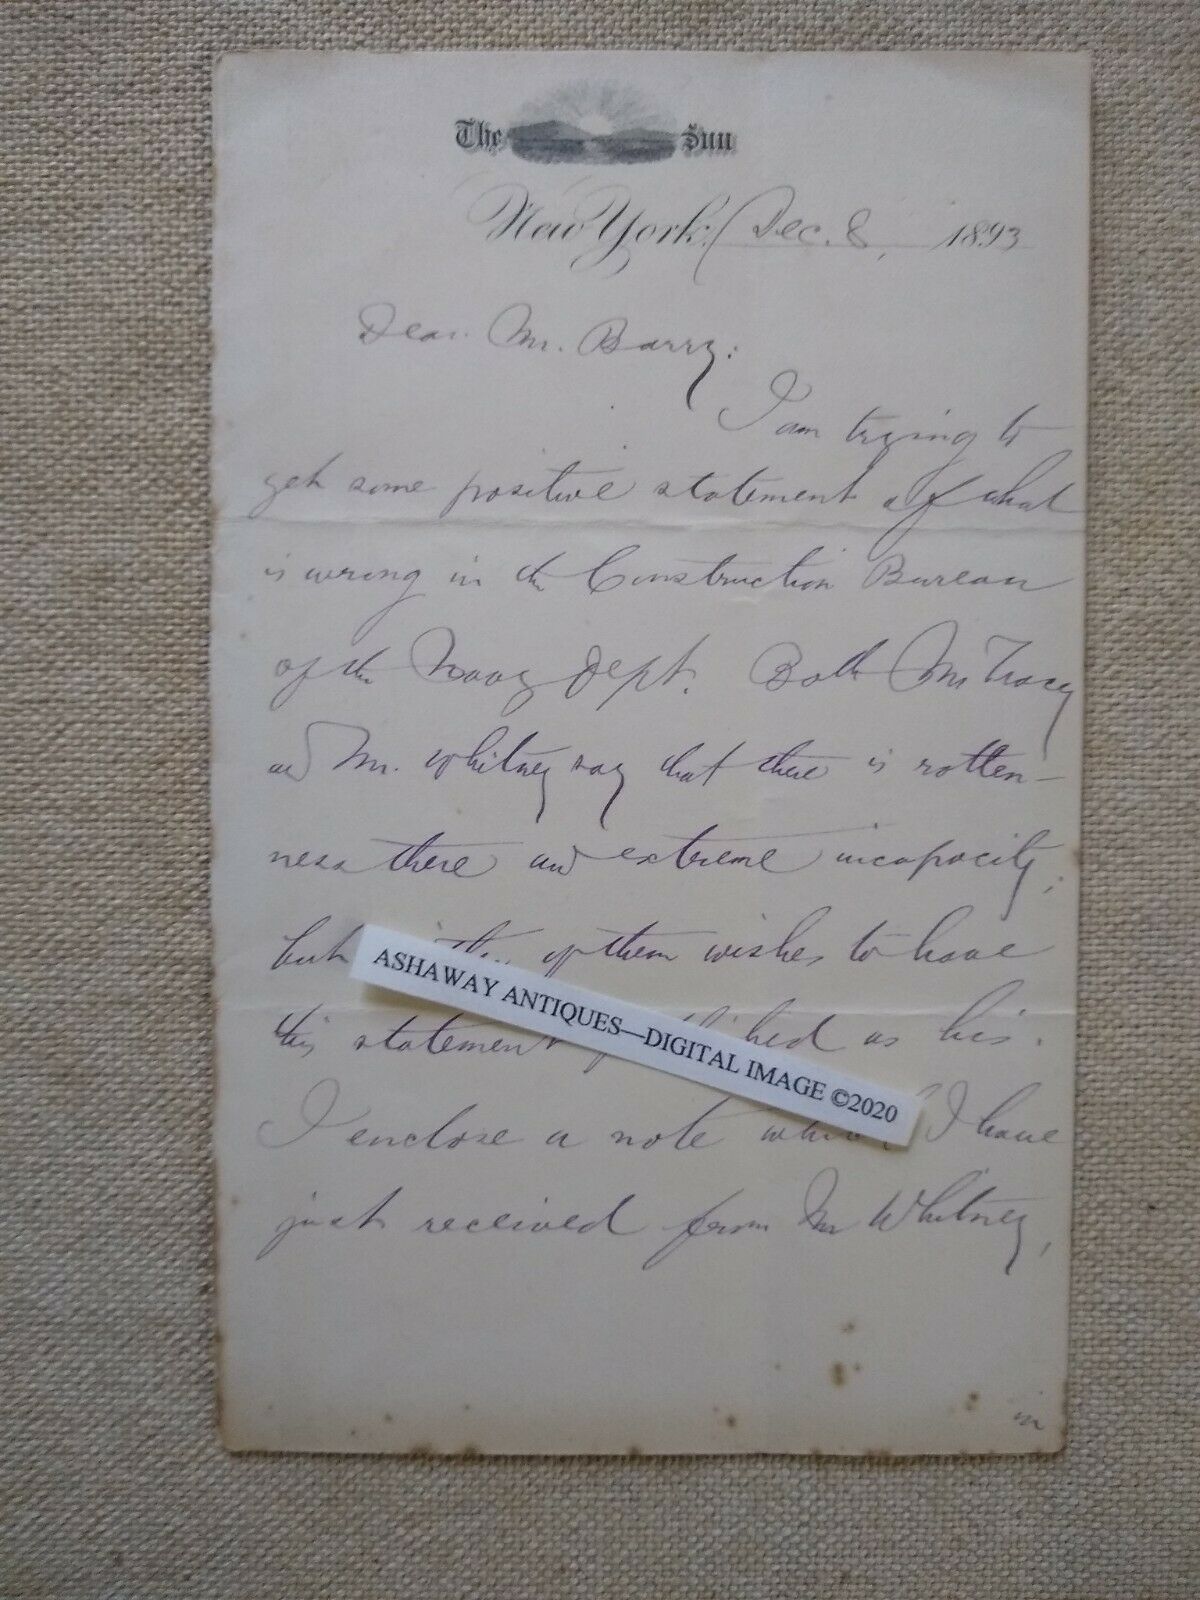 The Sun
New York, Dec. 8, 1893
Dear Mr. Barry:
I am trying to
get some positive statement of what
is wrong in the Construction Bureau
of the Navy Dept. Both Mr Tracy
and Mr. Whitney say that there is rotten-
ness there and extreme incapacity;
but of them wishes to have
this statement as his.
I enclose a note which I have
just received from Mr Whitney,
in
ASHAWAY ANTIQUES—DIGITAL IMAGE ©2020